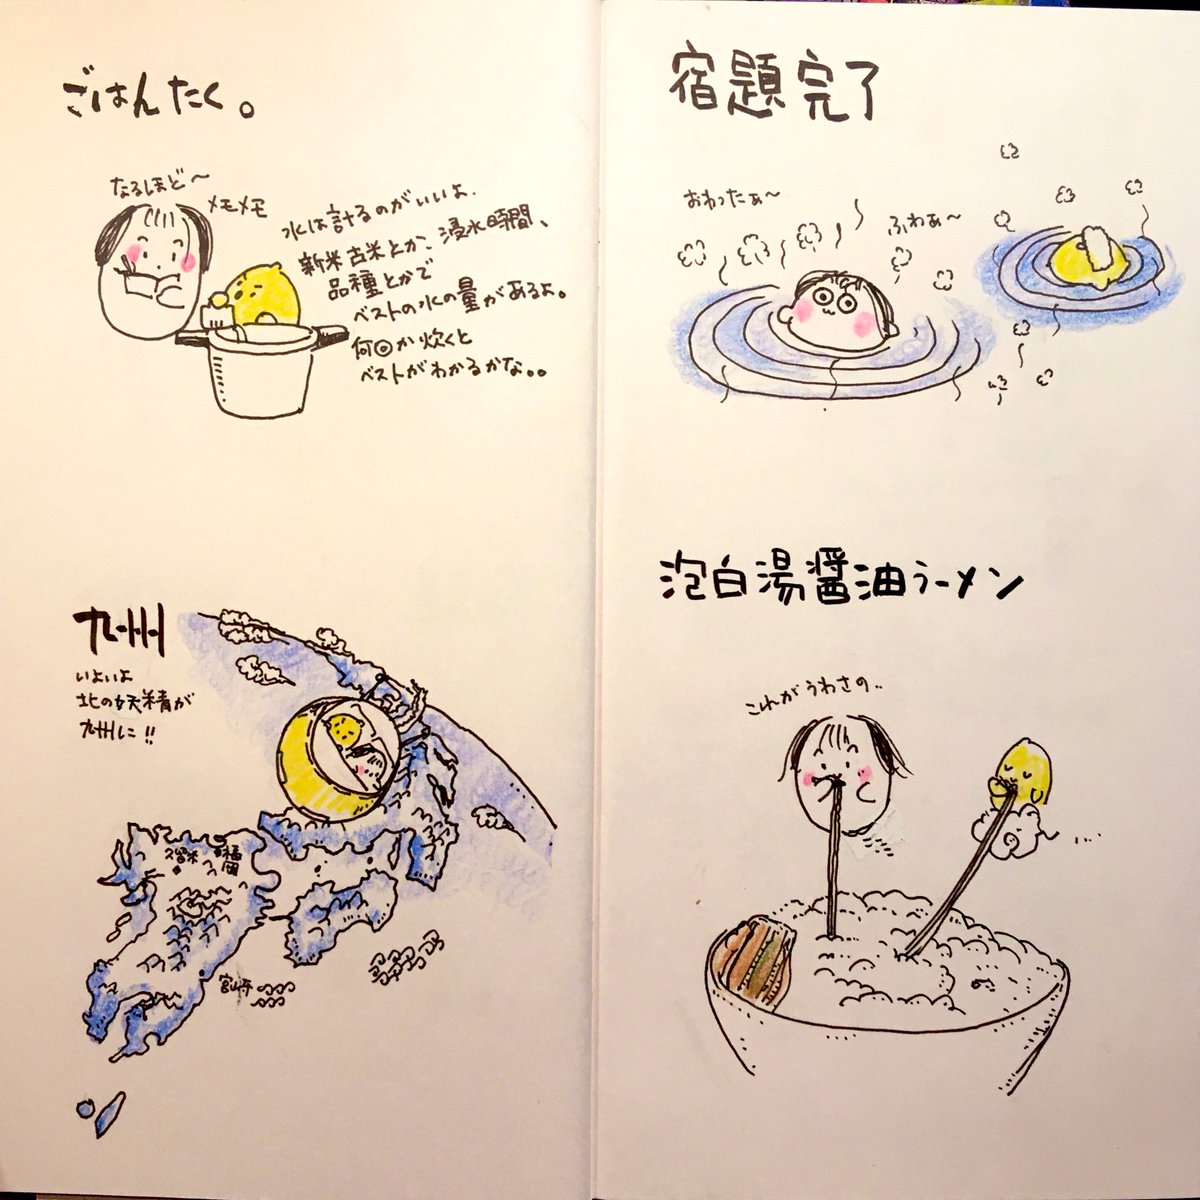 ごはんたく。
なるほど〜
メモメモ
水は計るのがいいよ.
新米古米とか、浸水時間、
品種とかで
ベストの水の量があるよ。
何回か炊くと
ベストがわかるかな。。
九州
いよいよ
北の妖精が
九州に!!
久留米
福岡
宮崎
宿題完了
おわったぁ〜
ふわぁ〜
泡白湯醤油ラーメン
これがうわさの..
...